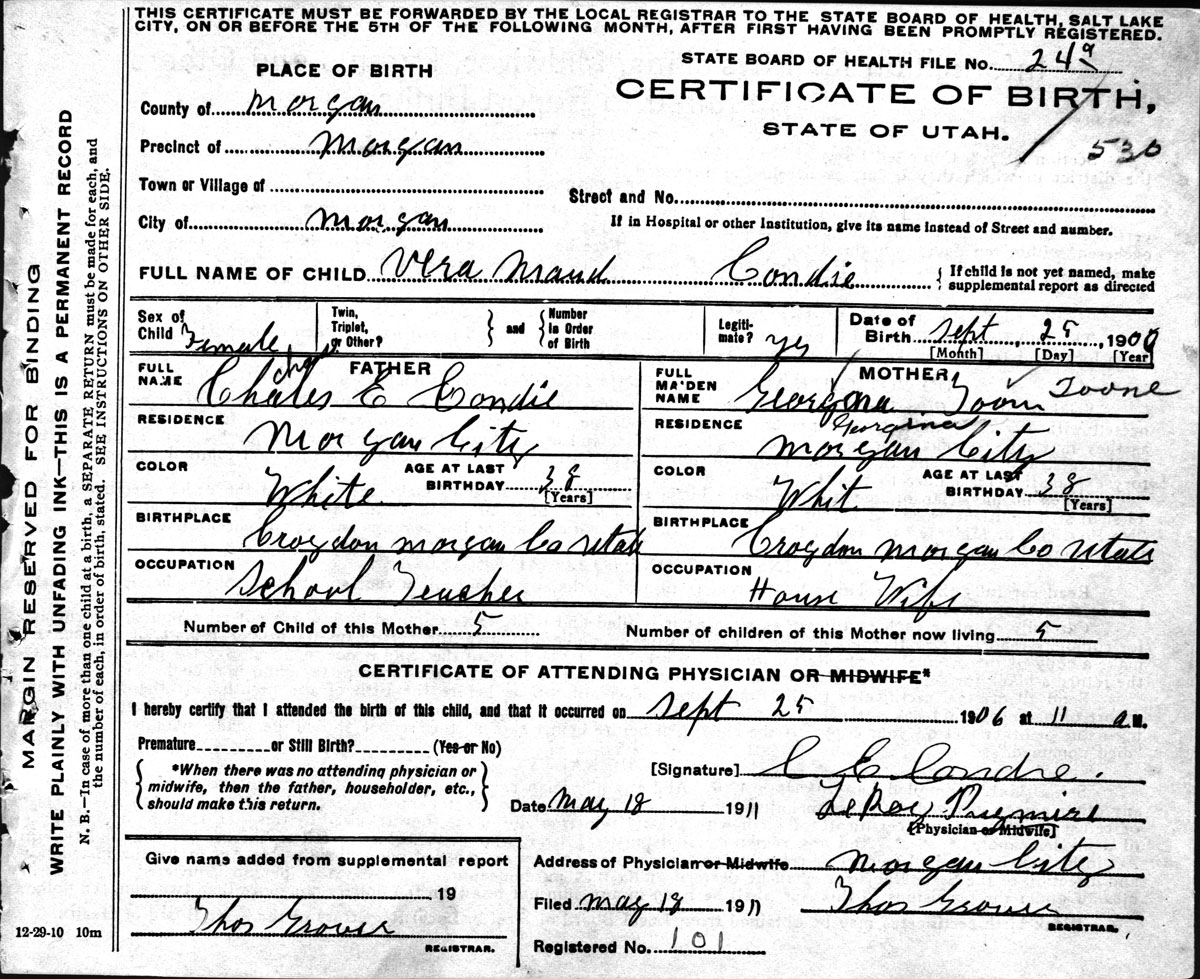 THIS CERTIFICATE MUST BE FORWARDED BY THE LOCAL REGISTRAR TO THE STATE BOARD OF HEALTH, SALT LAKE
CITY, ON OR BEFORE THE 5TH OF THE FOLLOWING MONTH, AFTER FIRST HAVING BEEN PROMPTLY REGISTERED.
MARGIN RESERVED FOR BINDING
WRITE PLAINLY WITH UNFADING INK—THIS IS A PERMANENT RECORD
N. B.—In case of more than one child at a birth, a SEPARATE RETURN must be made for each, and
the number of each, in order of birth, stated. SEE INSTRUCTIONS ON OTHER SIDE.
STATE BOARD OF HEALTH FILE No. 249
PLACE OF BIRTH
CERTIFICATE OF BIRTH,
STATE OF UTAH.
530
County of Morgan
Precinct of Morgan
Town or Village of
Street and No.
City of Morgan
If in Hospital or other Institution, give its name instead of Street and number.
FULL NAME OF CHILD Vera Maud Condie { If child is not yet named, make
supplemental report as directed
Sex of
Child Female
Twin,
Triplet,
or Other?
} and {
Number
in Order
of Birth
Legiti-
mate? yes
Date of
Birth Sept 25, 1906
[Month] [Day] [Year]
FATHER
FULL
NAME Chales E Condie
chas
MOTHER
FULL
MAIDEN
NAME Georgona Toom Toone
Georgina
RESIDENCE Morgan City
RESIDENCE Morgan City
COLOR White
AGE AT LAST
BIRTHDAY 38
[Years]
COLOR Whit
AGE AT LAST
BIRTHDAY 38
[Years]
BIRTHPLACE Croydon Morgan Co Utah
BIRTHPLACE Croydon Morgan Co Utah
OCCUPATION School Teacher
OCCUPATION House Wife
Number of Child of this Mother 5
Number of children of this Mother now living 5
CERTIFICATE OF ATTENDING PHYSICIAN OR MIDWIFE*
I hereby certify that I attended the birth of this child, and that it occurred on Sept 25 1906 at 11 a.M.
Premature or Still Birth? (Yes or No)
{ *When there was no attending physician or
midwife, then the father, householder, etc.,
should make this return. }
[Signature] C E Condie.
Date May 18 1911 LeRoy Pugmire
[Physician or Midwife]
Give name added from supplemental report
19
Thos Grover
REGISTRAR.
Address of Physician or Midwife Morgan City
Filed May 18 1911 Thos Grover
REGISTRAR.
Registered No. 101
12-29-10 10m